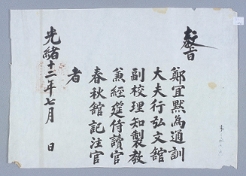 敎旨
鄭宜黙為通訓
大夫行弘文館
副校理知製敎
兼經筵侍讀官
春秋館記注官
者
光緖十二年七月 日